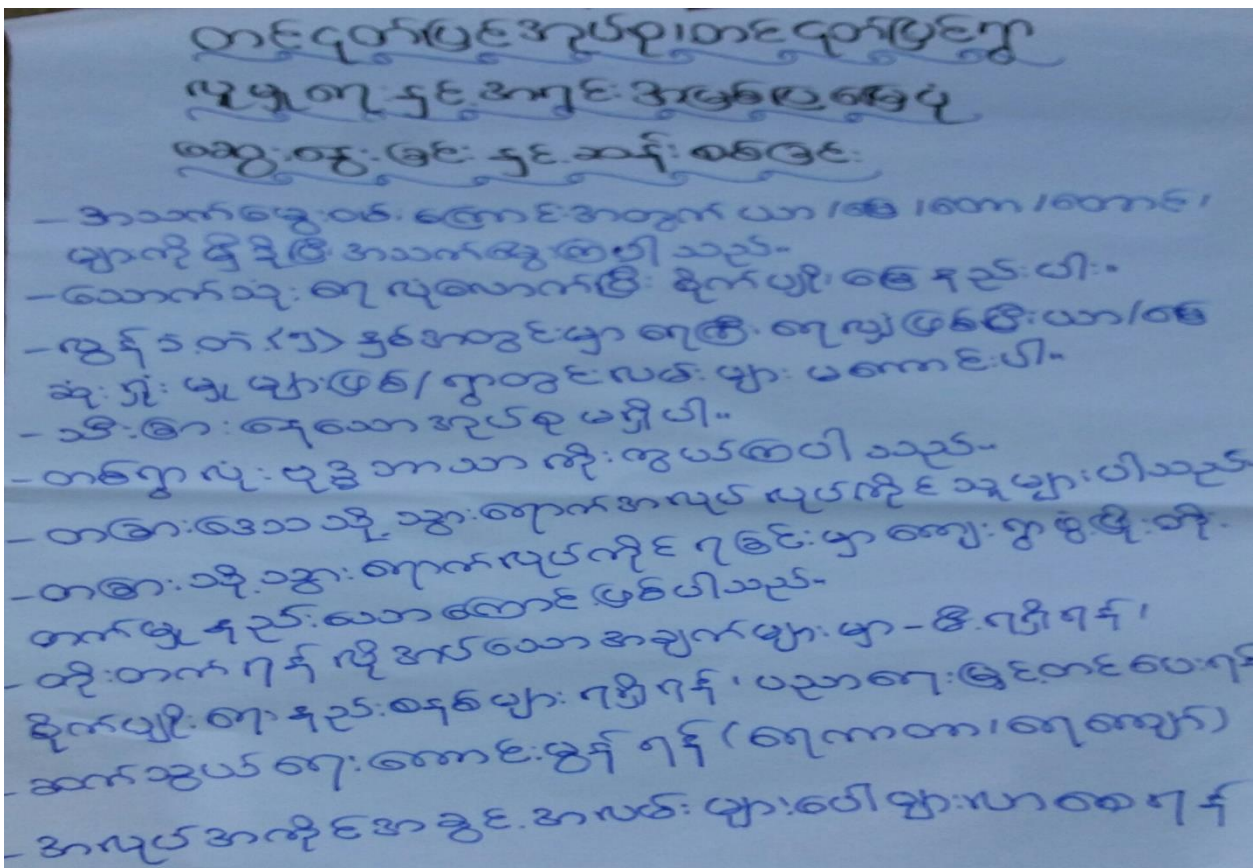 တင်ငုတ်ပြင်အုပ်စု၊တင်ငုတ်ပြင်ရွာ
လူမှုရေးနှင့်အရင်းအမြစ်ပြမြေပုံ
ဆွေးနွေးခြင်းနှင့်ဆန်းစစ်ခြင်း
- အသက်မွေးဝမ်းကြောင်းအတွက် ယာ/မြေ/တော/တောင်၊
များကိုမှီခိုပြီးအသက်မွေးကြပါသည်။
- သောက်သုံးရေလုံလောက်ပြီး စိုက်ပျိုးမြေနည်းပါး။
- လွန်ခဲ့တဲ့ (၅) နှစ်အတွင်းမှာရေကြီးရေလျှံဖြစ်ပြီးယာ/မြေ
ဆုံးရှုံးမှုများဖြစ်/ရွာတွင်းလမ်းများမကောင်းပါ။
- သီးခြားနေသောအုပ်စုမရှိပါ။
- တစ်ရွာလုံးဗုဒ္ဓဘာသာကိုးကွယ်ကြပါသည်။
- တခြားဒေသသို့သွားရောက်အလုပ်လုပ်ကိုင်သူများပါသည်
- တခြားသို့သွားရောက်လုပ်ကိုင်ရခြင်းမှာကျေးရွာဖွံ့ဖြိုးတိုး
တက်မှုနည်းသောကြောင့်ဖြစ်ပါသည်။
- တိုးတက်ရန်လိုအပ်သောအချက်များမှာ - မီးရရှိရန်၊
စိုက်ပျိုးရေးနည်းစနစ်များရရှိရန်၊ ပညာရေးမြှင့်တင်ပေးရန်
- ဆက်သွယ်ရေးကောင်းမွန်ရန် (ရေကာတာ၊ရေကျော်)
- အလုပ်အကိုင်အခွင့်အလမ်းများပေါများလာစေရန်